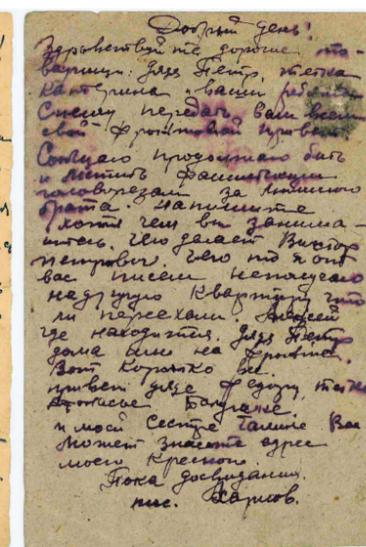 Добрый день!
Здравствуйте дорогие то-
варищи: дядя Петр, тетка
Катерина и ваши
Спешу передать вам всем
свой фронтовой привет.
Сообщаю продолжаю бить
и мстить фашистским
головорезам за
брата. Напишите
хотя чем вы занима-
итесь, чего делает Виктор
Петрович. Чего то я от
вас писем неполучаю
на другую квартиру что
ли переехали. Алексей
где находится. Дядя Петр
дома или на фронте.
Вот коротко все.
привет дяде Федору, тетке
и моей сестре Галине
Может знаете адрес
моего Крестного.
Пока досвидания.
пис. Харков.